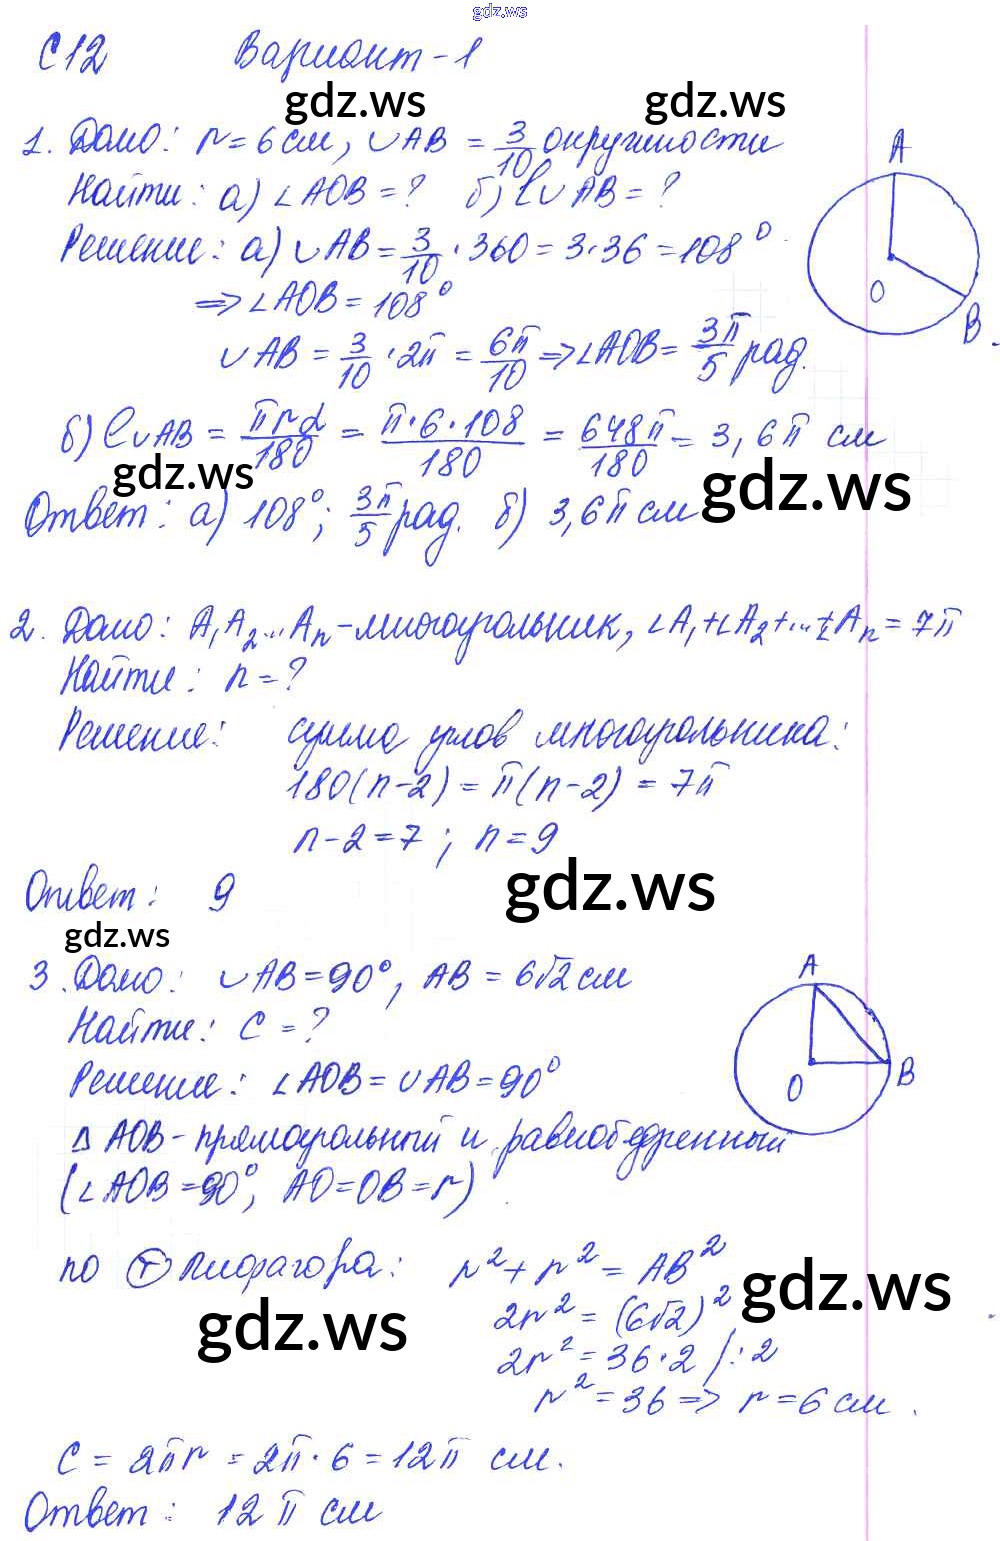 gdz.ws
С12 Вариант-1
gdz.ws gdz.ws
1. Дано: r=6см, ∪AB = 3/10 окружности
Найти: а) ∠AOB=? б) l∪AB=?
Решение: а) ∪AB = 3/10 · 360 = 3·36 = 108°
⇒ ∠AOB = 108°
∪AB = 3/10 · 2π = 6π/10 ⇒ ∠AOB = 3π/5 рад.
A
O
B
б) l∪AB = πrα/180 = π·6·108/180 = 648π/180 = 3,6π см
gdz.ws gdz.ws
Ответ: а) 108°; 3π/5 рад. б) 3,6π см
2. Дано: A₁A₂...Aₙ-многоугольник, ∠A₁+∠A₂+...+∠Aₙ=7π
Найти: n=?
Решение: сумма углов многоугольника:
180(n-2) = π(n-2) = 7π
n-2=7; n=9
Ответ: 9
gdz.ws
gdz.ws
3. Дано: ∪AB=90°, AB = 6√2 см
Найти: C=?
Решение: ∠AOB = ∪AB = 90°
△AOB-прямоугольный и равнобедренный
(∠AOB=90°, AO=OB=r)
A
O
B
по Ⓣ Пифагора: r²+r² = AB²
gdz.ws
2r² = (6√2)²
gdz.ws
2r² = 36·2 /:2
r² = 36 ⇒ r = 6 см.
C = 2πr = 2π·6 = 12π см.
Ответ: 12π см